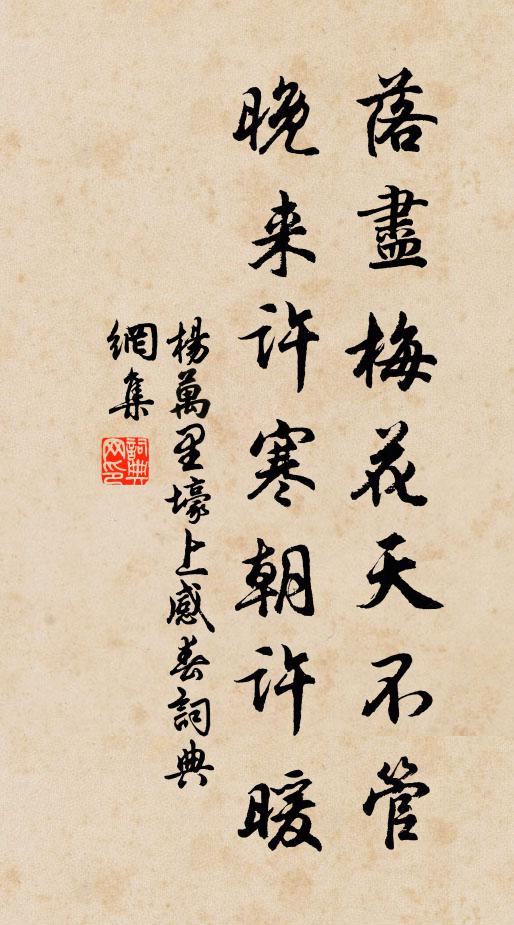 落盡梅花天不管
晚来許寒朝許暖
楊萬里壕上感春詞典
網集
詞典網印